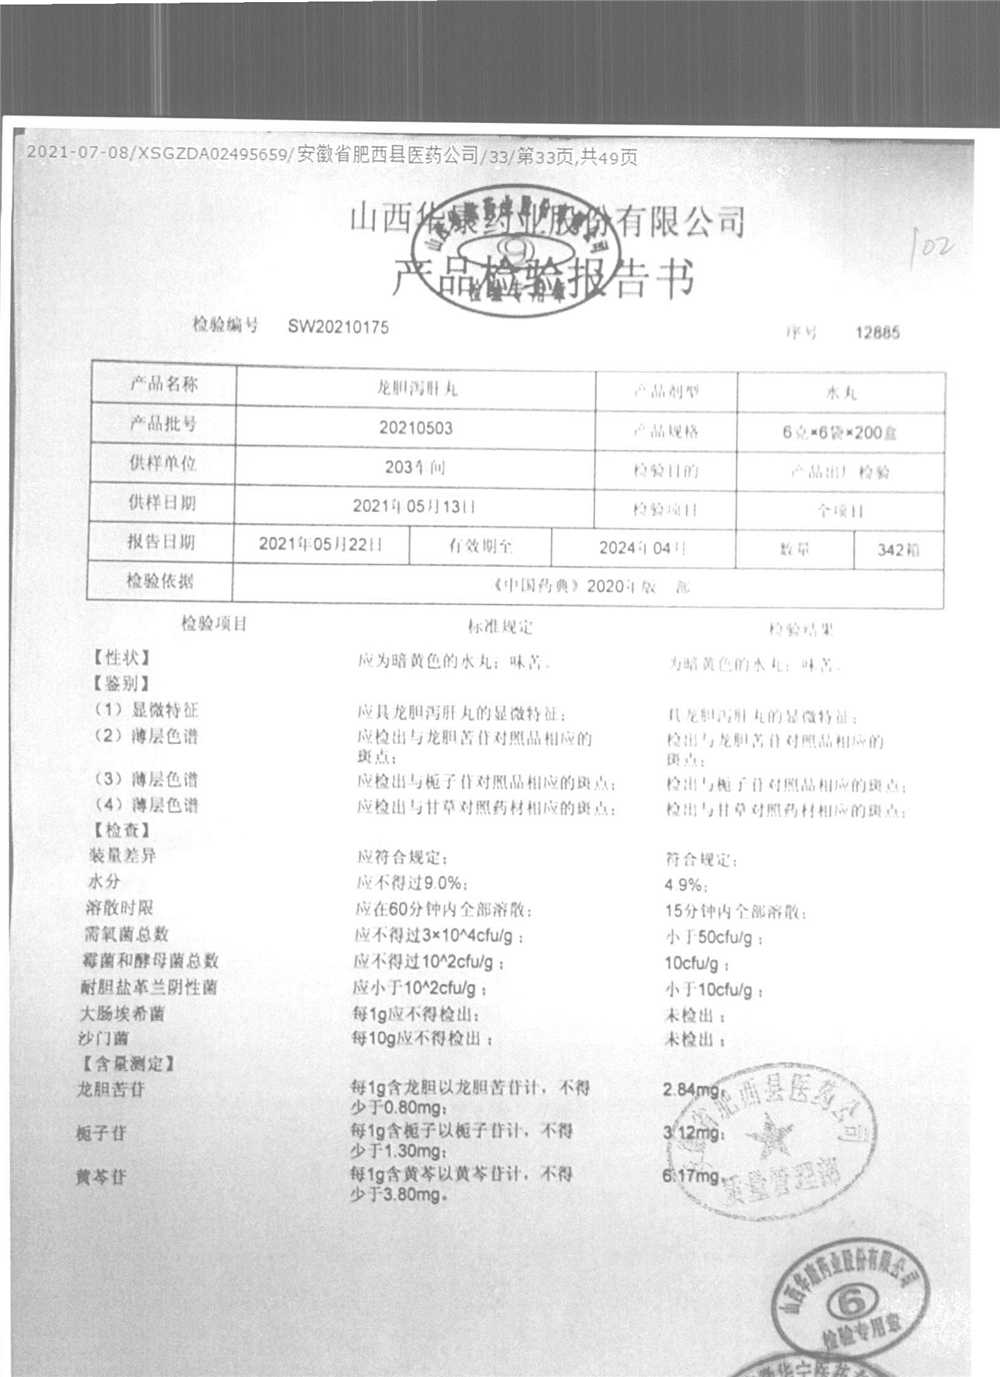 2021-07-08/XSGZDA02495659/安徽省肥西县医药公司/33/第33页,共49页
山西华康药业股份有限公司
102
产品检验报告书
检验专用章
检验编号 SW20210175 序号 12885
产品名称 龙胆泻肝丸 产品剂型 水丸
产品批号 20210503 产品规格 6克×6袋×200盒
供样单位 203车间 检验目的 产品出厂检验
供样日期 2021年05月13日 检验项目 全项目
报告日期 2021年05月22日 有效期至 2024年04月 数量 342箱
检验依据 《中国药典》2020年版 部
检验项目 标准规定 检验结果
【性状】 应为暗黄色的水丸；味苦。 为暗黄色的水丸；味苦。
【鉴别】
（1）显微特征 应具龙胆泻肝丸的显微特征； 具龙胆泻肝丸的显微特征；
（2）薄层色谱 应检出与龙胆苦苷对照品相应的 检出与龙胆苦苷对照品相应的
斑点； 斑点；
（3）薄层色谱 应检出与栀子苷对照品相应的斑点； 检出与栀子苷对照品相应的斑点；
（4）薄层色谱 应检出与甘草对照药材相应的斑点； 检出与甘草对照药材相应的斑点；
【检查】
装量差异 应符合规定； 符合规定；
水分 应不得过9.0%； 4.9%；
溶散时限 应在60分钟内全部溶散； 15分钟内全部溶散；
需氧菌总数 应不得过3×10^4cfu/g； 小于50cfu/g；
霉菌和酵母菌总数 应不得过10^2cfu/g； 10cfu/g；
耐胆盐革兰阴性菌 应小于10^2cfu/g； 小于10cfu/g；
大肠埃希菌 每1g应不得检出； 未检出；
沙门菌 每10g应不得检出； 未检出；
【含量测定】
龙胆苦苷 每1g含龙胆以龙胆苦苷计，不得 2.84mg；
少于0.80mg；
栀子苷 每1g含栀子以栀子苷计，不得 3.12mg；
少于1.30mg；
黄芩苷 每1g含黄芩以黄芩苷计，不得 6.17mg。
少于3.80mg。
安徽省肥西县医药公司
质量管理部
山西华康药业股份有限公司
6
检验专用章